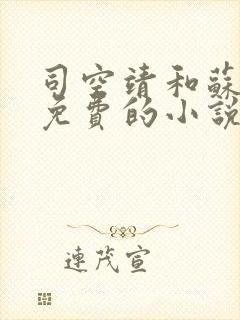 司空靖和蘇
免費的小說
連茂宣